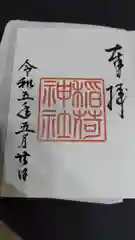 奉拝
稲荷神社
令和五年五月廿日